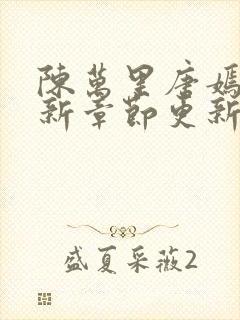 陳萬里唐嫣
新章節更新
盛夏采薇2